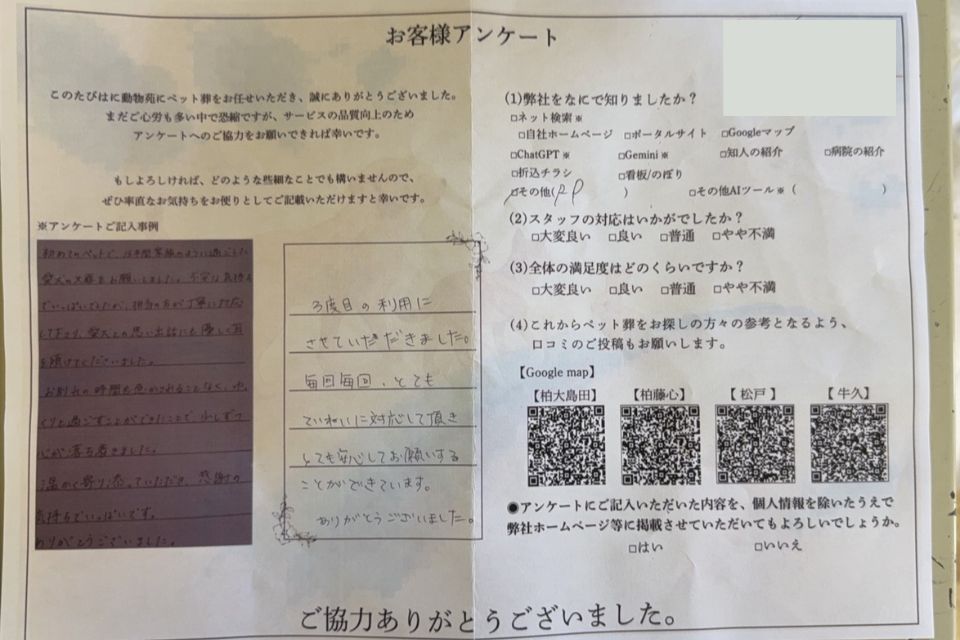 お客様アンケート
このたびはに動物苑にペット葬をお任せいただき、誠にありがとうございました。
まだご心労も多い中で恐縮ですが、サービスの品質向上のため
アンケートへのご協力をお願いできれば幸いです。
もしよろしければ、どのような些細なことでも構いませんので、
ぜひ率直なお気持ちをお便りとしてご記載いただけますと幸いです。
※アンケートご記入事例
初めてのペットで、15年間家族のように過ごした
愛犬の火葬をお願いしました。不安な気持ち
でいっぱいでしたが、担当の方が丁寧に対応
して下さり、愛犬との思い出話にも優しく耳
を傾けてくださいました。
お別れの時間も急かされることなく、ゆっ
くりと過ごすことができたことで、少しずつ
心が落ち着きました。
温かく寄り添っていただき、感謝の
気持ちでいっぱいです。
ありがとうございました。
3度目の利用に
させていただだきました。
毎回毎回、とても
ていねいに対応して頂き
とても安心してお願いする
ことができています。
ありがとうございました。
(1)弊社をなにで知りましたか？
□ネット検索※
□自社ホームページ □ポータルサイト □Googleマップ
□ChatGPT※ □Gemini※ □知人の紹介 □病院の紹介
□折込チラシ □看板/のぼり
□その他( ) □その他AIツール※( )
(2)スタッフの対応はいかがでしたか？
□大変良い □良い □普通 □やや不満
(3)全体の満足度はどのくらいですか？
□大変良い □良い □普通 □やや不満
(4)これからペット葬をお探しの方々の参考となるよう、
口コミのご投稿もお願いします。
【Google map】
【柏大島田】 【柏藤心】 【松戸】 【牛久】
●アンケートにご記入いただいた内容を、個人情報を除いたうえで
弊社ホームページ等に掲載させていただいてもよろしいでしょうか。
□はい □いいえ
ご協力ありがとうございました。